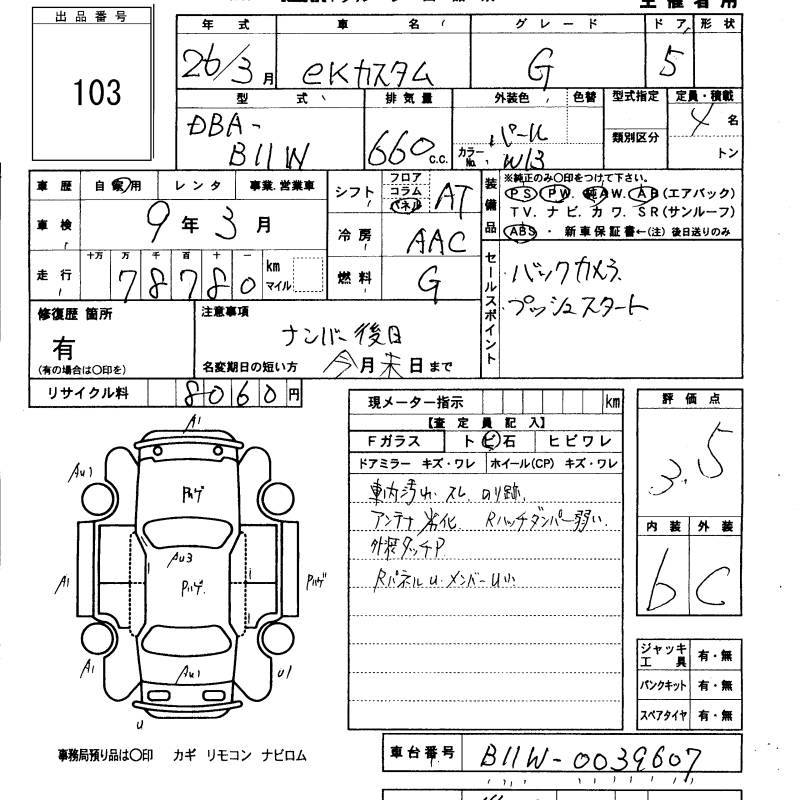 出品番号
103
年式 車名 グレード ドア 形状
26/3月 eKカスタム G 5
型式 排気量 外装色 色替 型式指定 定員・積載
DBA-
B11W
660 c.c.
パール
カラーNo. W13
類別区分
4 名
トン
車歴 自家用 レンタ 事業.営業車
車検 9年3月
走行 十万 万 千 百 十 一
78780 km
マイル
シフト フロア コラム パネル AT
冷房 AAC
燃料 G
装備品
※純正のみ〇印をつけて下さい。
PS PW. 純AW. AB(エアバック)
TV. ナビ. カワ. SR(サンルーフ)
ABS ・ 新車保証書←(注) 後日送りのみ
セールスポイント
・バックカメラ
・プッシュスタート
修復歴 箇所
有
(有の場合は〇印を)
注意事項
ナンバー後日
名変期日の短い方 今月末日まで
リサイクル料 8060円
現メーター指示 km
【査定員記入】
Fガラス トビ石 ヒビワレ
ドアミラー キズ・ワレ ホイール(CP) キズ・ワレ
車内汚れ.スレ.のり跡.
アンテナ劣化. Rハッチダンパー弱い.
外装タッチP
RパネルU.メンバーU小
評価点
3.5
内装 外装
b C
ジャッキ工具 有・無
パンクキット 有・無
スペアタイヤ 有・無
A1
Au1
Pハゲ
Au3
A1
Pハゲ.
Pハゲ
A1
Au1
U1
U
事務局預り品は〇印 カギ リモコン ナビロム
車台番号 B11W-0039607